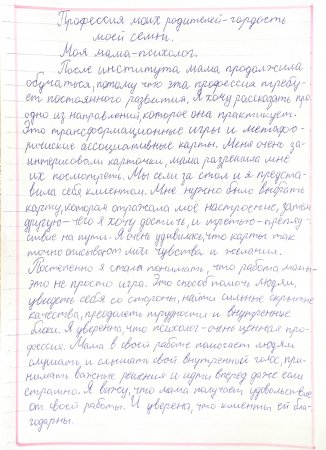 Профессия моих родителей-гордость
моей семьи.
Моя мама-психолог.
После института мама продолжила
обучаться, потому что эта профессия требу-
ет постоянного развития. Я хочу рассказать про
одно из направлений, которое она практикует.
Это трансформационные игры и метафо-
рические ассоциативные карты. Меня очень за-
интересовали карточки, мама разрешила мне
их посмотреть. Мы сели за стол и я предста-
вила себя клиентом. Мне нужно было выбрать
карту, которая отражала моё настроение, затем
другую-чего я хочу достичь, и третью-препят-
ствие на пути. Я очень удивилась, что карты так
точно описывают мои чувства и желания.
Постепенно я стала понимать, что работа мамы-
это не просто игра. Это способ помочь людям,
увидеть себя со стороны, найти сильные скрытые
качества, преодолеть трудности и внутренние
блоки. Я уверена, что психолог-очень ценная про-
фессия. Мама в своей работе помогает людям
слушать и слышать свой внутренний голос, при-
нимать важные решения и идти вперед даже если
страшно. Я вижу, что мама получает удовольствие
от своей работы. И уверена, что клиенты ей бла-
годарны.